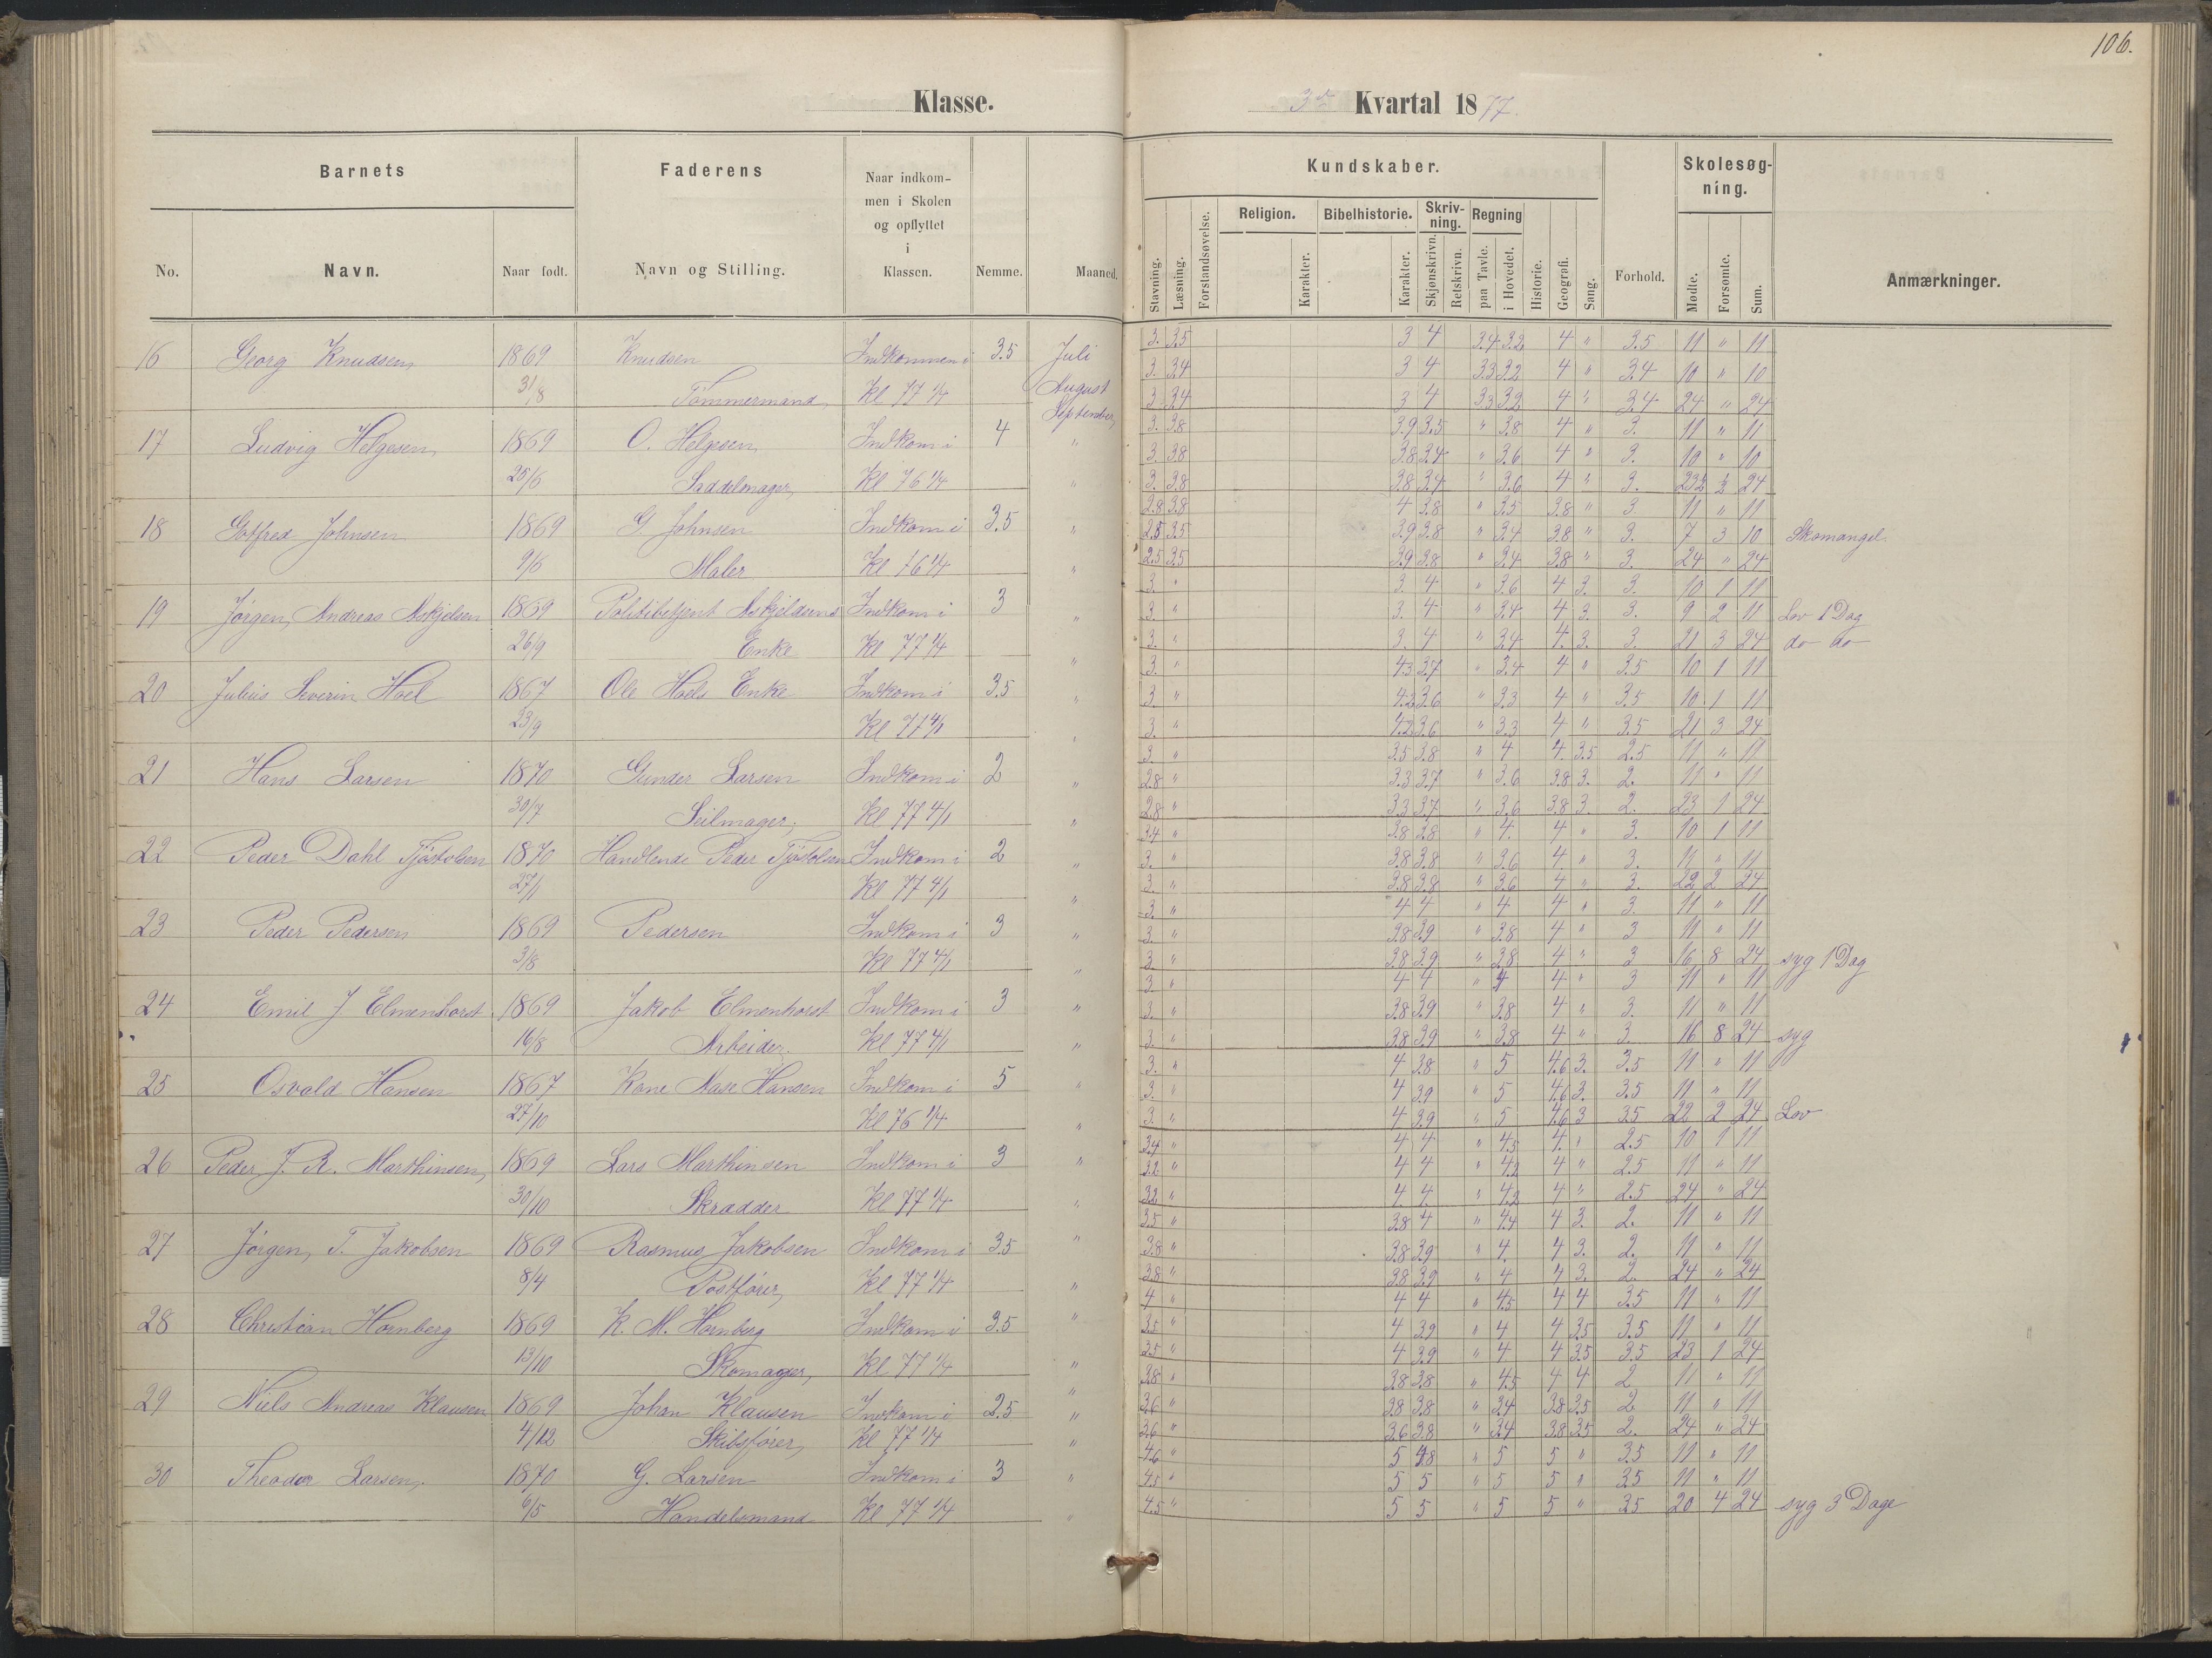 106.
Klasse.
3die Kvartal 1877.
Barnets
Faderens
Naar indkommen i Skolen og opflyttet i Klassen.
Nemme.
Maaned.
No.
Navn.
Naar født.
Navn og Stilling.
Kundskaber.
Stavning.
Læsning.
Forstandsøvelse.
Religion.
Karakter.
Bibelhistorie.
Karakter.
Skrivning.
Skjønskrivn.
Retskrivn.
Regning
paa Tavle.
i Hovedet.
Historie.
Geografi.
Sang.
Forhold.
Skolesøgning.
Mødte.
Forsømte.
Sum.
Anmærkninger.
16 Georg Knudsen, 1869 Knudsen Indkommen i 3.5 Juli 3. 3.5 3 4 3.4 3.2 4 " 3.5 11 " 11
31/8 Tømmermand, Kl 77 1/4 August 3. 3.4 3 4 3.3 3.2 4 " 3.4 10 " 10
September, 3. 3.4 3 4 3.3 3.2 4 " 3.4 24 " 24
17 Ludvig Helgesen, 1869 O. Helgesen Indkom i 4 " 3. 3.8 3.9 3.5 " 3.8 4 " 3. 11 " 11
3. 3.8 3.8 3.4 " 3.6 4 " 3. 10 " 10
25/6 Saddelmager, Kl 76 1/4 " 3. 3.8 3.8 3.4 " 3.6 4 " 3. 23½ ½ 24
2.8 3.8 4 3.8 " 3.5 3.8 " 3 11 " 11
18 Gotfred Johnsen 1869 G. Johnsen Indkom i 3.5 " 2.5 3.5 3.9 3.8 " 3.4 3.8 " 3. 7 3 10 Skomangel.
9/6 Maler Kl 76 1/4 " 2.5 3.5 3.9 3.8 " 3.4 3.8 " 3. 24 " 24
3. " 3. 4 " 3.6 4 3. 3. 10 1 11
19 Jørgen, Andreas Askjelsen 1869 Politibetjent Askjeldsens Indkom i 3 " 3. " 3. 4 " 3.4 4 3. 3. 9 2 11 Lov 1 Dag
26/9 Enke Kl 77 1/4 " 3. " 3. 4 " 3.4 4. 3. 3. 21 3 24 do do
3. " 4.3 3.7 " 3.4 4 " 3.5 10 1 11
20 Julius Severin Hoel 1867 Ole Hoels Enke Indkom i 3.5 " 3. " 4.2 3.6 " 3.3 4 " 3.5 10 1 11
23/9 Kl 77 4/1 " 3. " 4.2 3.6 " 3.3 4 " 3.5 21 3 24
3. " 3.5 3.8 " 4 4. 3.5 2.5 11 " 11
21 Hans Larsen 1870 Gunder Larsen Indkom i 2 " 2.8 " 3.3 3.7 " 3.6 3.8 3. 2. 11 " 11
30/7 Seilmager, Kl 77 4/1 " 2.8 " 3.3 3.7 " 3.6 3.8 3. 2. 23 1 24
3.4 " 3.8 3.8 " 4. 4 " 3. 10 1 11
22 Peder Dahl Tjøstolsen 1870 Handlende Peder Tjøstolsen Indkom i 2 " 3. " 3.8 3.8 " 3.6 4 " 3. 11 " 11
27/1 Kl 77 4/1 " 3. " 3.8 3.8 " 3.6 4 " 3. 22 2 24
3. " 4 4 " 4 4 " 3. 11 " 11
23 Peder Pedersen 1869 Pedersen Indkom i 3 " 3. " 3.8 3.9 " 3.8 4 " 3 11 " 11
3/8 Kl 77 4/1 " 3. " 3.8 3.9 " 3.8 4 " 3 16 8 24 syg 1 Dag
3. " 4 4 " 4 4 " 3 11 " 11
24 Emil J Elmenhorst 1869 Jakob Elmenhorst Indkom i 3 " 3. " 3.8 3.9 " 3.8 4 " 3. 11 " 11
16/8 Arbeider. Kl 77 4/1 " 3. " 3.8 3.9 " 3.8 4 " 3. 16 8 24 syg
3. " 4 3.8 " 5 4.6 3. 3.5 11 " 11
25 Osvald Hansen 1867 Kone Aase Hansen Indkom i 5 " 3. " 4 3.9 " 5 4.6 3. 3.5 11 " 11
27/10 Kl 76 1/4 " 3. " 4 3.9 " 5 4.6 3 3.5 22 2 24 Lov
3.4 " 4 4 " 4.5 4. " 2.5 10 1 11
26 Peder J. R. Marthinsen, 1869 Lars Marthinsen Indkom i 3 " 3.2 " 4 4 " 4.2 4 " 2.5 11 " 11
30/10 Skrædder Kl 77 1/4 " 3.2 " 4 4 " 4.2 4 " 2.5 24 " 24
3.5 " 3.8 4 " 4.4 4 3. 2. 11 " 11
27 Jørgen, T. Jakobsen 1869 Rasmus Jakobsen Indkom i 3.5 " 3.8 " 3.8 3.9 " 4. 4 3. 2. 11 " 11
8/4 Postfører, Kl 77 1/4 " 3.8 " 3.8 3.9 " 4 4 3. 2. 24 " 24
4 " 4 4 " 4.5 4 4 3.5 11 " 11
28 Christian Hornberg 1869 K. M. Hornberg Indkom i 3.5 " 3.5 " 4 3.9 " 4 4 3.5 3.5 11 " 11
13/10 Skomager, Kl 77 1/4 " 3.5 " 4 3.9 " 4 4 3.5 3.5 23 1 24
3.8 " 3.8 3.8 " 4.5 4 4 2 11 " 11
29 Niels Andreas Klausen 1869 Johan Klausen Indkom i 2.5 " 3.6 " 3.8 3.8 " 3.4 3.8 3.5 2. 11 " 11
4/12 Skibsfører, Kl 77 1/4 " 3.6 " 3.6 3.8 " 3.4 3.8 3.5 2. 24 " 24
4.6 " 5 4.8 " 5 5 " 3.5 11 " 11
30 Theodor Larsen, 1870 G. Larsen Indkom i 3 " 4.5 " 5 5 " 5 5 " 3.5 11 " 11
6/5 Handelsmand Kl 77 1/4 " 4.5 " 5 5 " 5 5 " 3.5 20 4 24 syg 3 Dage